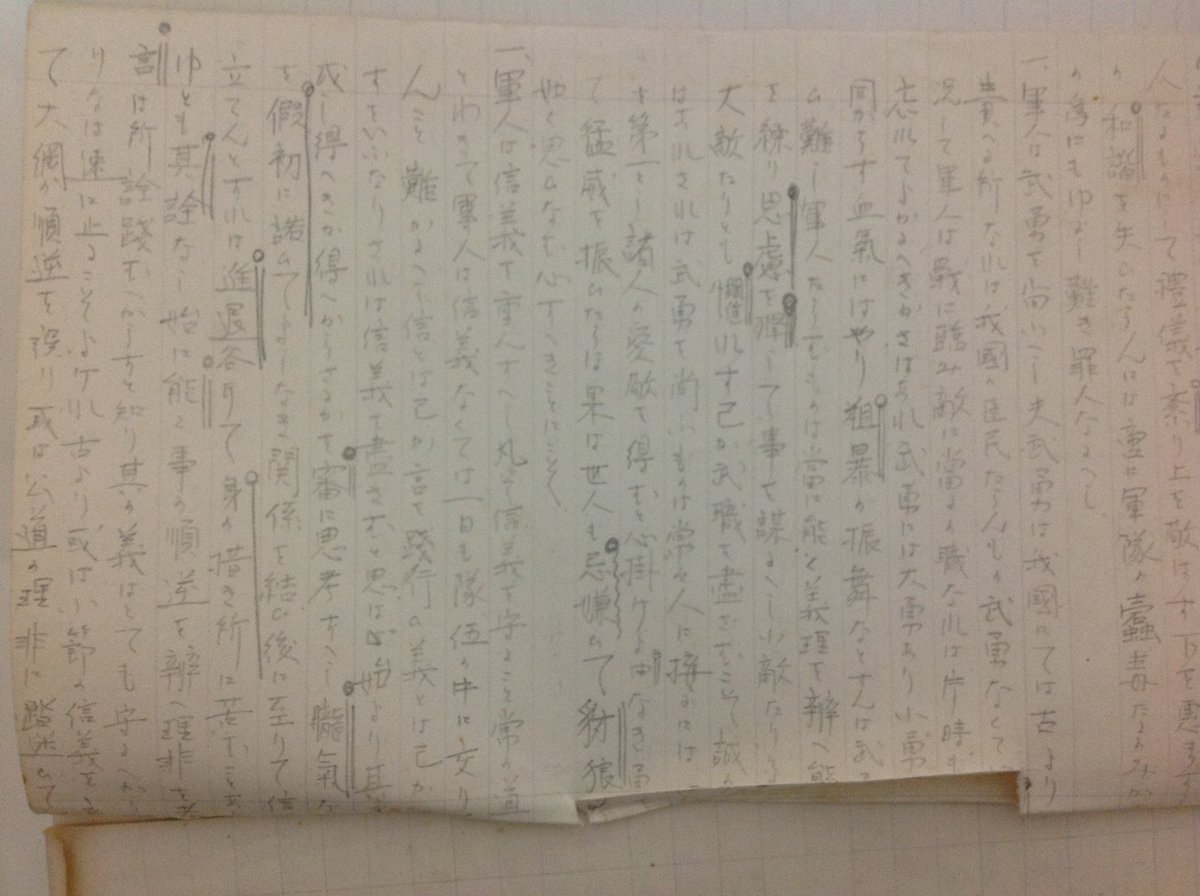 人たるものにして禮儀を紊り上を敬はす下を惠ます
の和諧を失ひたらんには啻に軍隊の蠹毒たるのみか
の為にもゆる 難き罪人なるへし
一、軍人は武勇を尚ふへし夫武勇は我國にては古より
貴へる所なれは我國の臣民たらんもの武勇なくて
况して軍人は戰に臨み敵に當るの職なれは片時も
忘れてよかるへきかさはあれ武勇には大勇あり小勇
同からす血氣にはやり粗暴の振舞なとせんは武
ひ難し軍人たらむものは常に能く義理を辨へ能
を練り思慮を殫して事を謀るへし小敵たりとも
大敵たりとも懼れす己か武職を盡さむこそ誠の
はあれされは武勇を尚ふものは常々人に接るには
を第一とし諸人の愛敬を得むと心掛けよ由なき勇
て猛威を振ひたらは果は世人も忌嫌ひて豺狼
如く思ひなむ心すへきことにこそ
一、軍人は信義を重んすへし凡そ信義を守ること常の道
とわきて軍人は信義なくては一日も隊伍の中に交り
んこと難かるへし信とは己か言を踐行ひ義とは己か
すをいふなりされは信義を盡さむと思はゝ始より其
成し得へきか得へからさるかを審に思考すへし朧氣な
を假初に諾ひてよしなき関係を結ひ後に至りて信
立てんとすれは進退谷りて身の措き所に苦むこと
ゆとも其詮なし始に能く事の順逆を辨へ理非を
言は所詮踐むへからすと知り其の義はとても守るへから
りなは速に止るこそよけれ古より或は小節の信義を立
て大綱の順逆を誤り或は公道の理非に踏迷ひて